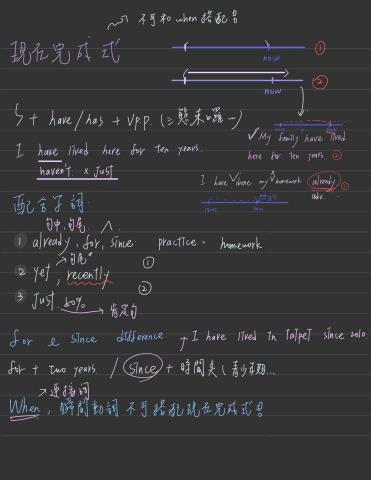 不可和when搭配喔
現在完成式
now ①
now ②
S + have/has + Vp.p. (三態來囉~)
✓ My family have lived here for ten years. ②
I have lived here for ten years.
haven't. × Just
I have done my homework already ①
adv.
配合子詞.
句中,句尾
① already, for, since practice. homework
句尾
② yet, recently ①
③ Just. 80% ②
肯定句
for e since difference I have lived in TaipeI since 2010.
for + two years. / since + 時間點 (青少年期...
連接詞
When, 瞬間動詞不可搭配現在完成式喔